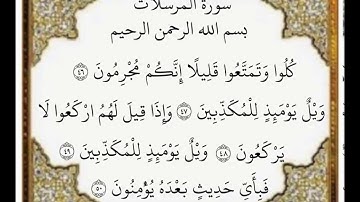 سورة المرسلات
بسم الله الرحمن الرحيم
كُلُوا وَتَمَتَّعُوا قَلِيلًا إِنَّكُمْ مُجْرِمُونَ ٤٦
وَيْلٌ يَوْمَئِذٍ لِلْمُكَذِّبِينَ ٤٧ وَإِذَا قِيلَ لَهُمُ ارْكَعُوا لَا
يَرْكَعُونَ ٤٨ وَيْلٌ يَوْمَئِذٍ لِلْمُكَذِّبِينَ ٤٩
فَبِأَيِّ حَدِيثٍ بَعْدَهُ يُؤْمِنُونَ ٥٠